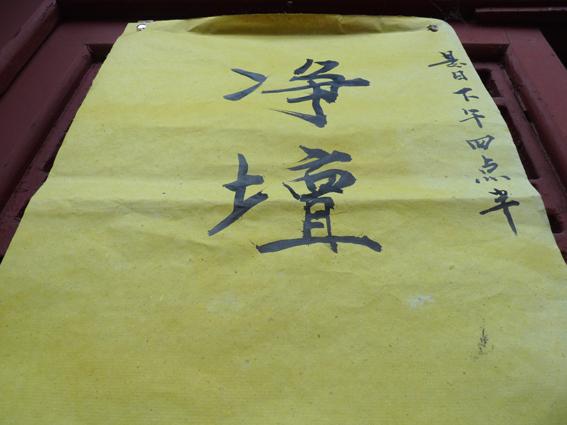 是日下午四点半
净壇